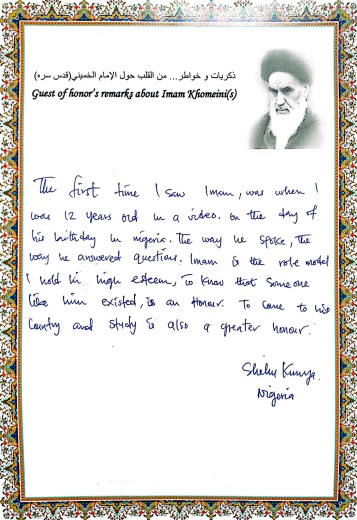 ذكريات و خواطر... من القلب حول الإمام الخميني(قدس سره)
Guest of honor's remarks about Imam Khomeini(s)
The first time I saw Imam, was when I
was 12 years old in a video. on the day of
his birthday in nigeria. The way he spoke, the
way he answered questions. Imam is the role model
I hold in high esteem, To know that someone
like him existed, is an Honour. To come to his
Country and study is also a greater honour.
Shehu Kunya.
Nigeria